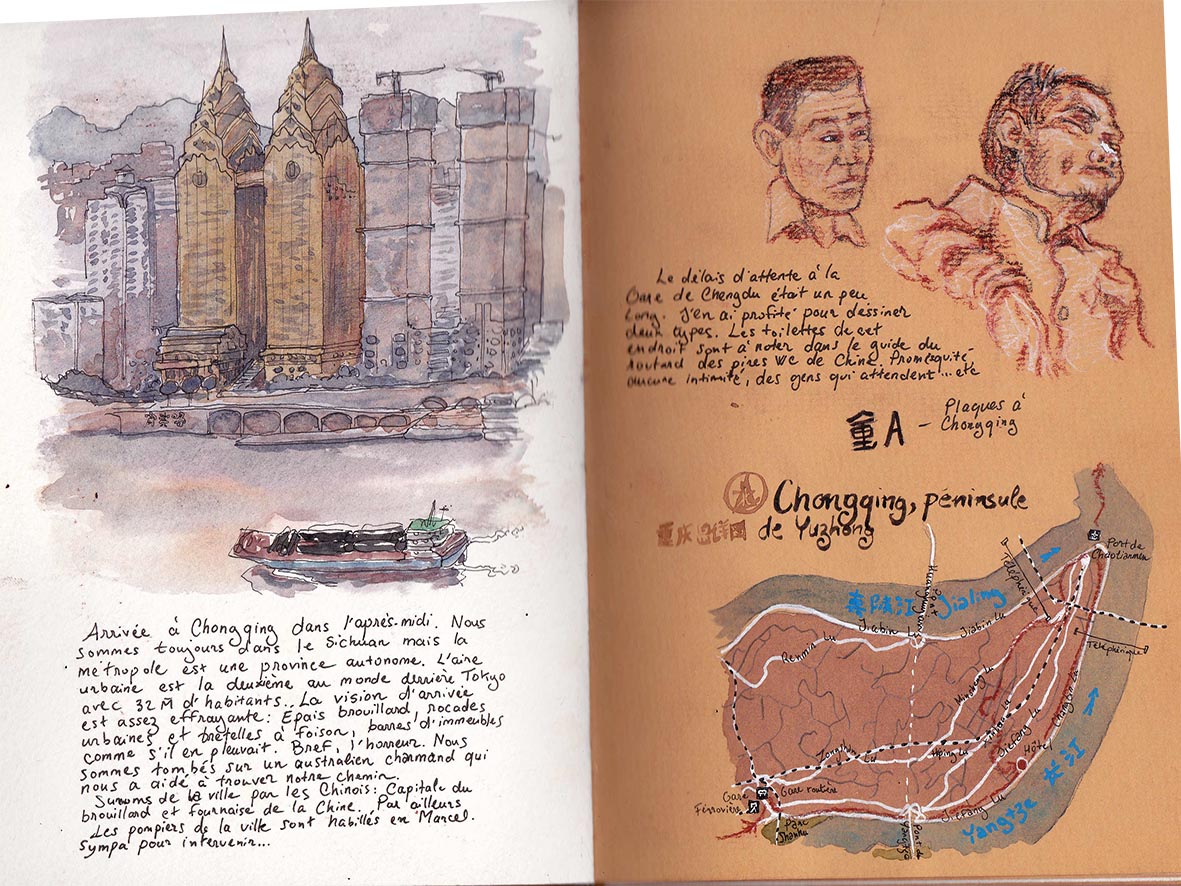 Arrivée à Chongqing dans l'après-midi. Nous
sommes toujours dans le Sichuan mais la
métropole est une province autonome. L'aire
urbaine est la deuxième au monde derrière Tokyo
avec 32 M d'habitants... La vision d'arrivée
est assez effrayante: Épais brouillard, rocades
urbaines et bretelles à foison, barres d'immeubles
comme s'il en pleuvait. Bref, l'horreur. Nous
sommes tombés sur un australien charmand qui
nous a aidé à trouver notre chemin.
Surnoms de la ville par les Chinois: Capitale du
brouillard et fournaise de la Chine. Par ailleurs
Les pompiers de la ville sont habillés en Marcel.
Sympa pour intervenir...
Le délais d'attente à la
Gare de Chengdu était un peu
Long. J'en ai profité pour dessiner
deux types. Les toilettes de cet
endroit sont à noter dans le guide du
routard des pires WC de Chine. Promesquité,
aucune intimité, des gens qui attendent!... etc
重A - Plaques à
Chongqing
Chongqing, péninsule
de Yuzhong
重庆
Port de
Chaotianmen
Téléphérique
Téléphérique
Jialing
Jiabin Lu
Jiabin Lu
Renmin Lu
Minsheng Lu
Jiefang Lu
Changbin Lu
Hôtel
Zhongshan Lu
Gare
Ferrovière
Gare routière
Parc
Shanhu
Jiefang Lu
Yangtze 长江